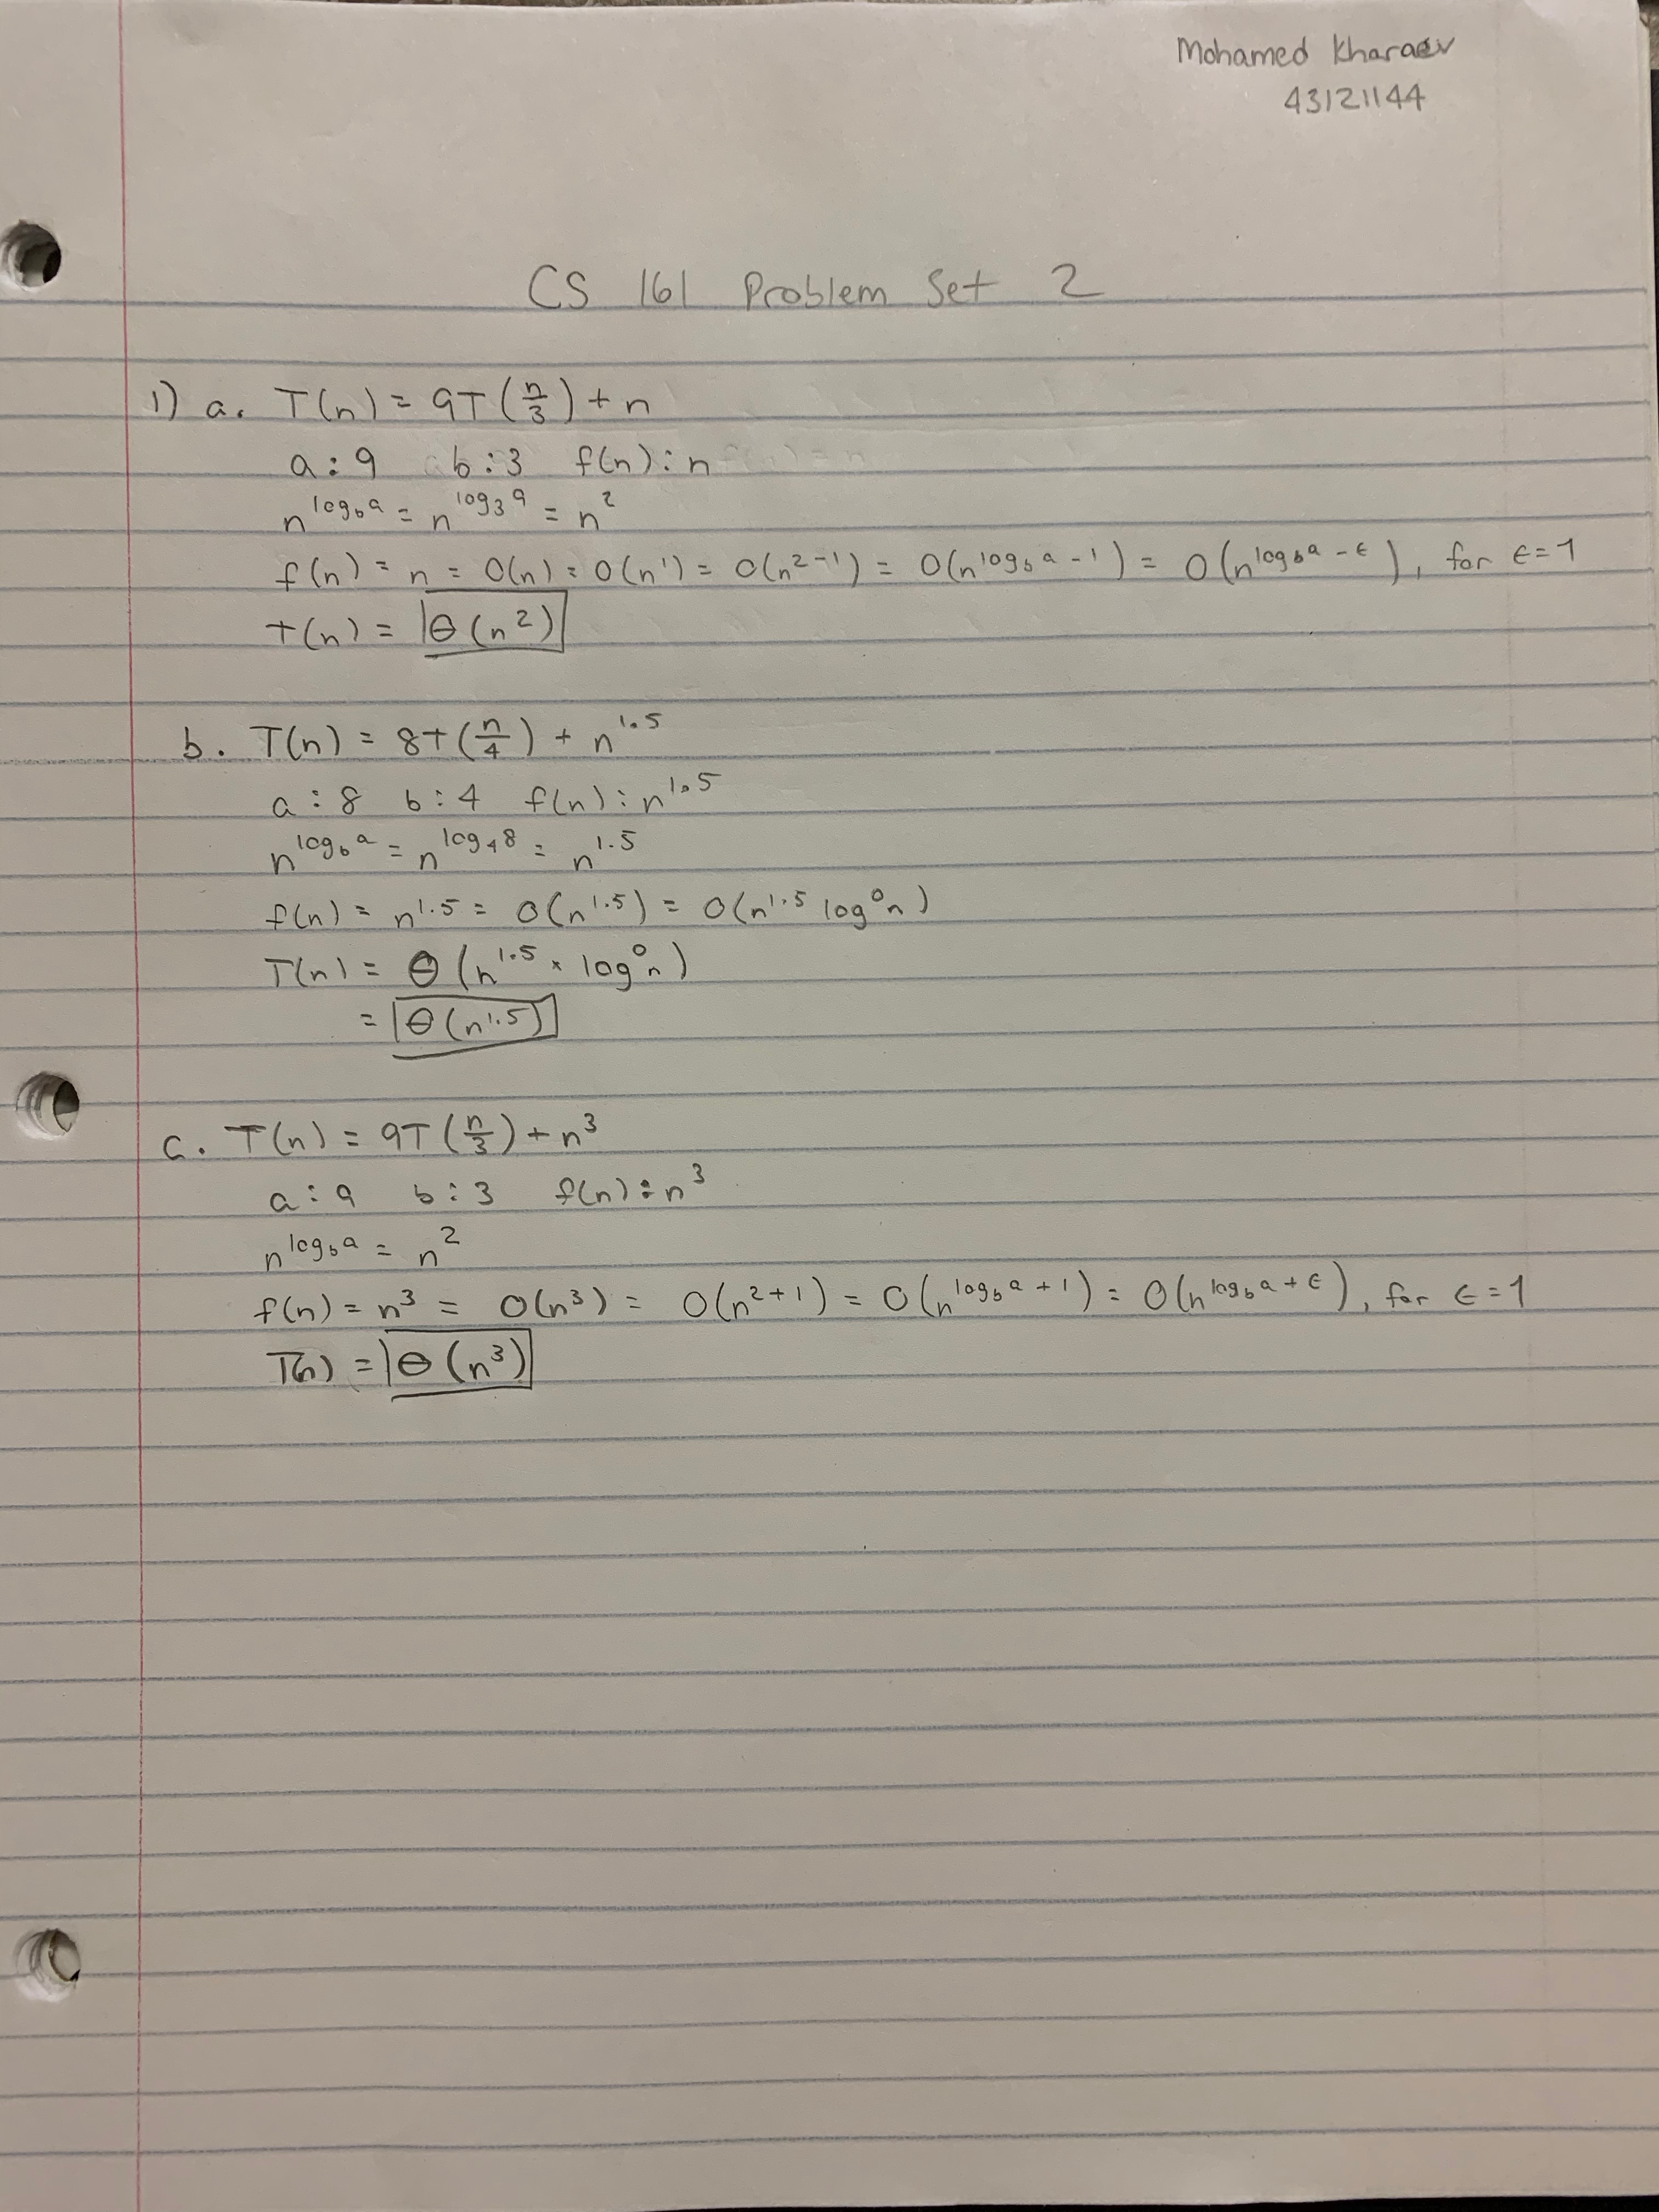 Mohamed Kharaev
43121144
CS 161 Problem Set 2
1) a. T(n) = 9T(n/3) + n
a : 9 b : 3 f(n) : n
n^log_b a = n^log_3 9 = n^2
f(n) = n = O(n) = O(n^1) = O(n^2-1) = O(n^log_b a - 1) = O(n^log_b a - ε), for ε = 1
T(n) = Θ(n^2)
b. T(n) = 8T(n/4) + n^1.5
a : 8 b : 4 f(n) : n^1.5
n^log_b a = n^log_4 8 = n^1.5
f(n) = n^1.5 = O(n^1.5) = O(n^1.5 log^0 n)
T(n) = Θ(n^1.5 × log^0 n)
= Θ(n^1.5)
c. T(n) = 9T(n/3) + n^3
a : 9 b : 3 f(n) : n^3
n^log_b a = n^2
f(n) = n^3 = O(n^3) = O(n^2+1) = O(n^log_b a + 1) = O(n^log_b a + ε), for ε = 1
T(n) = Θ(n^3)